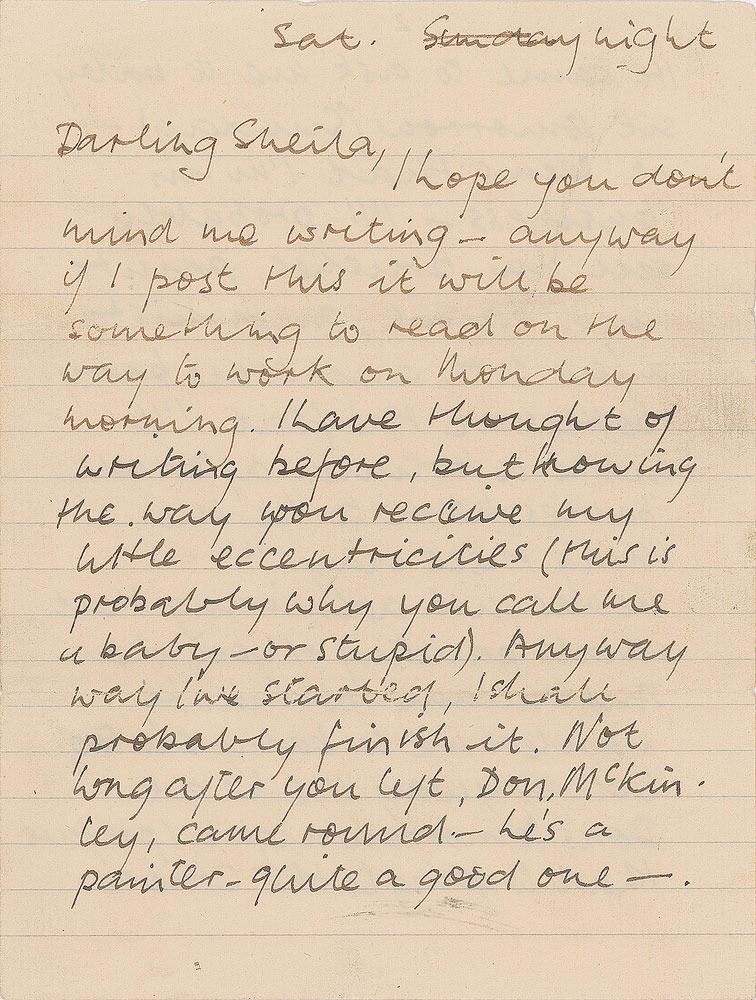 Sat. Sunday night
Darling Sheila,
I hope you don't
mind me writing – anyway
if I post this it will be
something to read on the
way to work on Monday
morning. I have thought of
writing before, but knowing
the way you receive my
little eccentricities (this is
probably why you call me
a baby – or stupid). Anyway
way I've started, I shall
probably finish it. Not
long after you left, Don, McKin-
ley, came round – he's a
painter – quite a good one —.